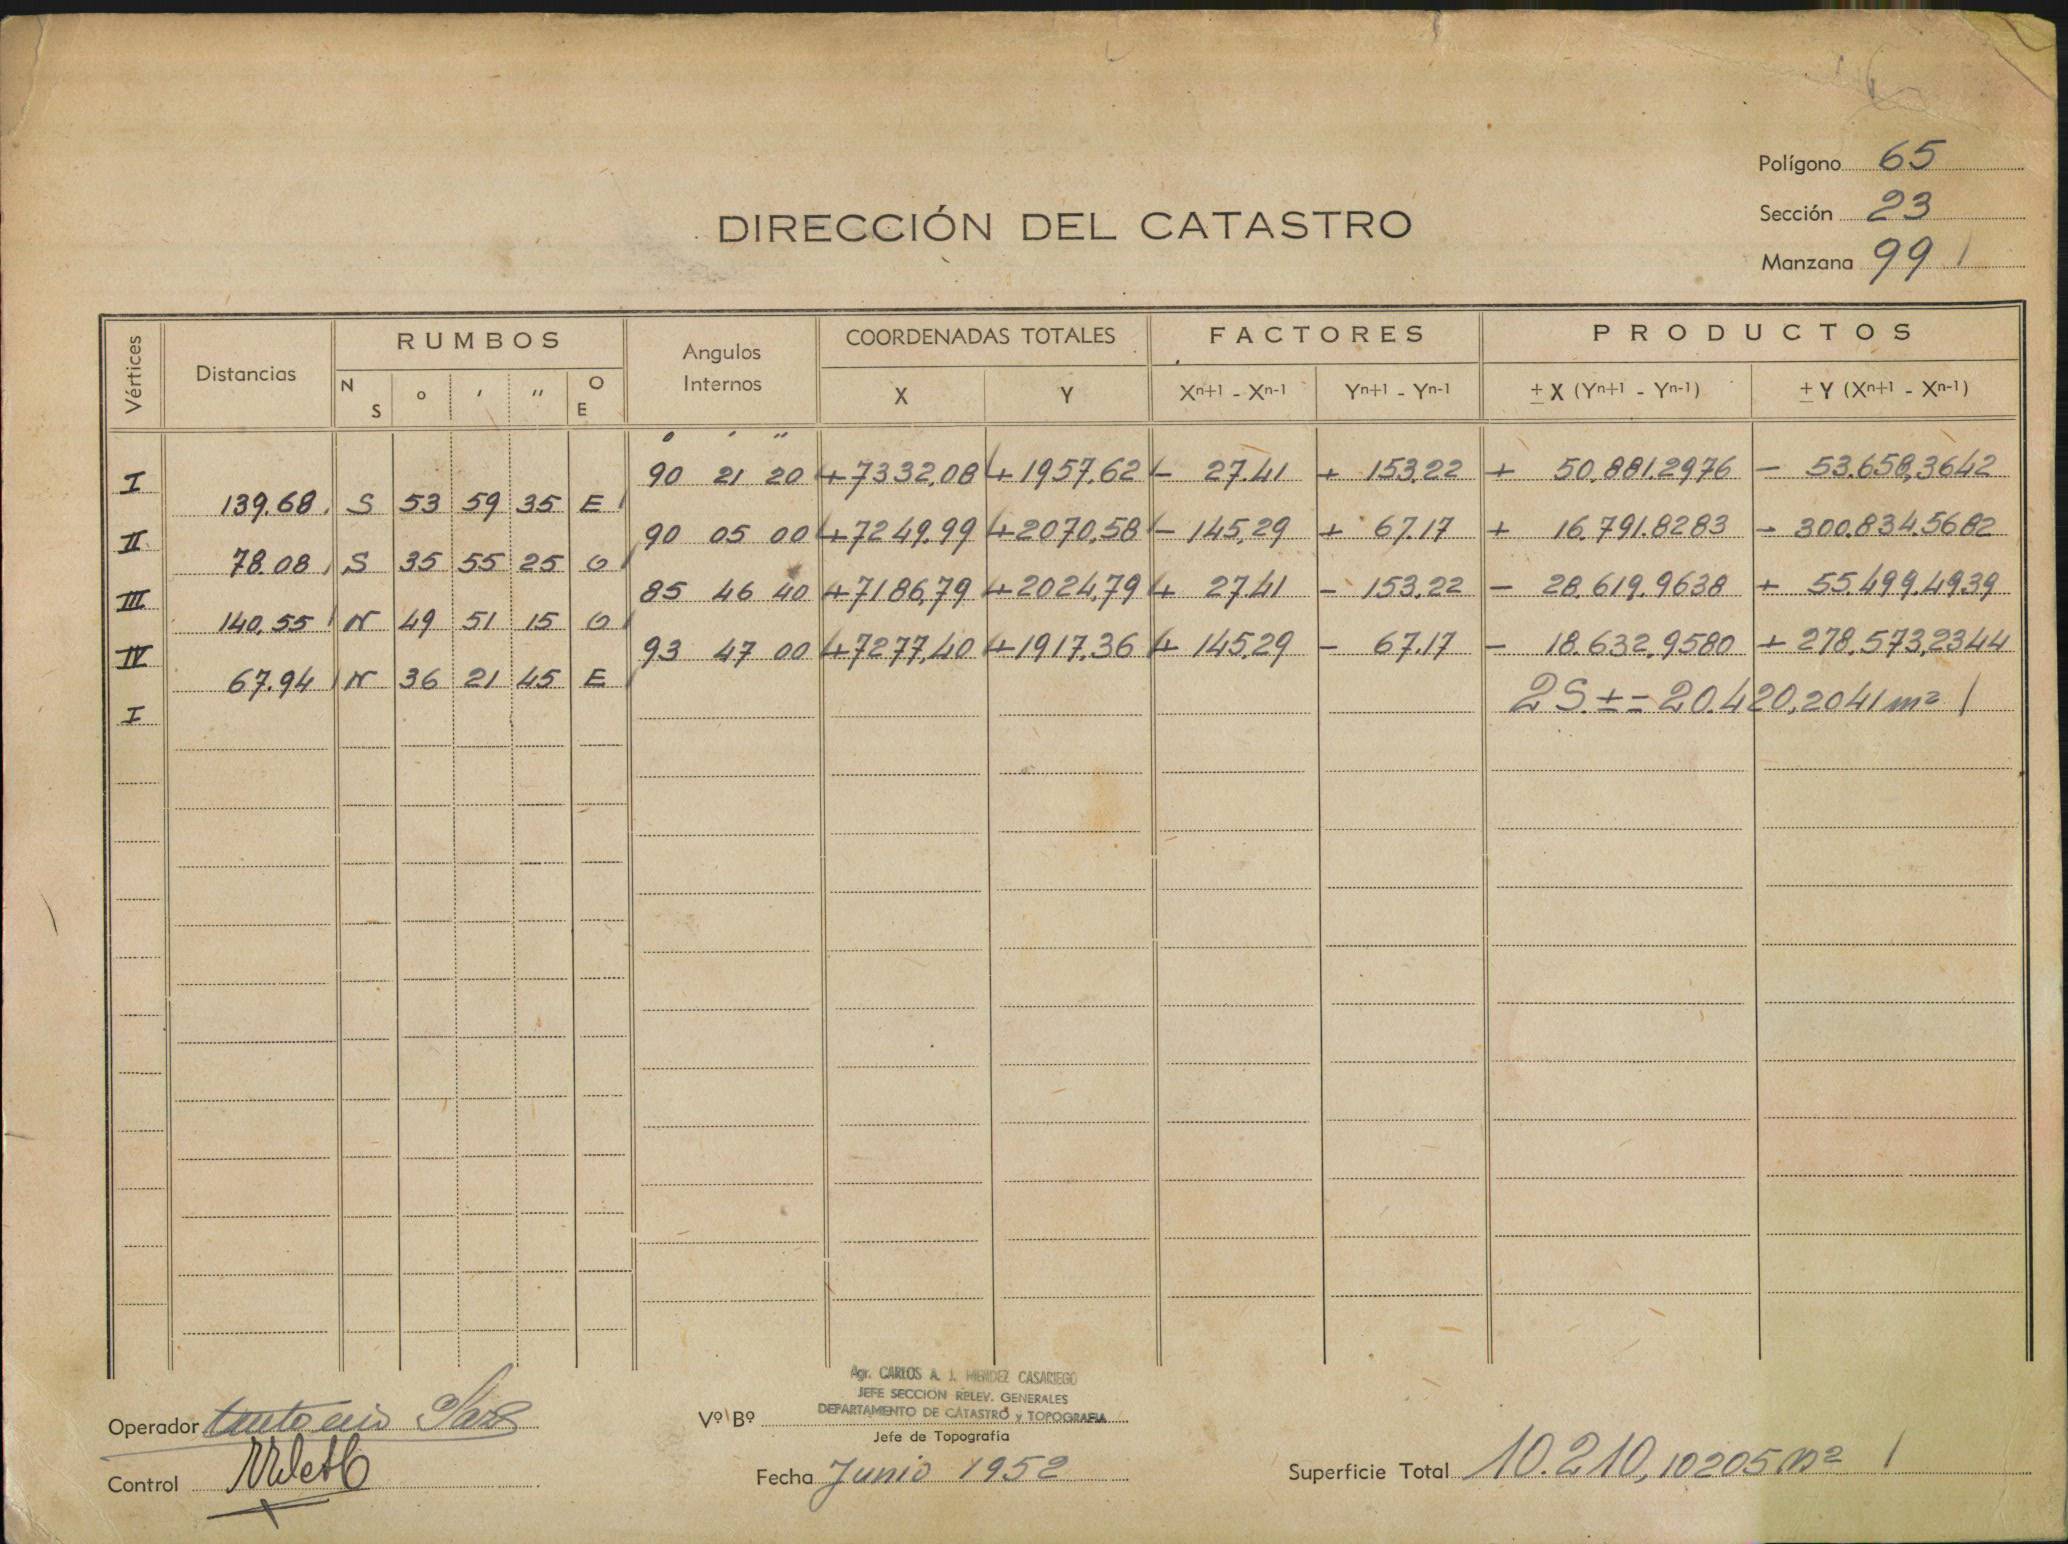 Polígono 65
Sección 23
DIRECCIÓN DEL CATASTRO
Manzana 99
Vértices Distancias RUMBOS Angulos Internos COORDENADAS TOTALES FACTORES PRODUCTOS
N S o ' " O E X Y Xn+1 - Xn-1 Yn+1 - Yn-1 ± X (Yn+1 - Yn-1) ± Y (Xn+1 - Xn-1)
o ' "
I 90 21 20 +7332,08 +1957,62 - 27.41 + 153,22 + 50.881.2976 - 53.658,3642
139.68 S 53 59 35 E
II 90 05 00 +7249.99 +2070,58 - 145,29 + 67.17 + 16.791.8283 - 300.834.5682
78.08 S 35 55 25 O
III 85 46 40 +7186,79 +2024,79 + 27.41 - 153.22 - 28.619.9638 + 55.499.4939
140.55 N 49 51 15 O
IV 93 47 00 +7277,40 +1917,36 + 145,29 - 67.17 - 18.632.9580 + 278.573,2344
67.94 N 36 21 45 E
I 2S ± = 20.420,2041 m²
Agr. CARLOS A. J. MENDEZ CASARIEGO
JEFE SECCION RELEV. GENERALES
DEPARTAMENTO DE CATASTRO y TOPOGRAFIA
Operador Antonio
Vº Bº
Jefe de Topografía
Control
Fecha Junio 1952
Superficie Total 10.210,10205 m²